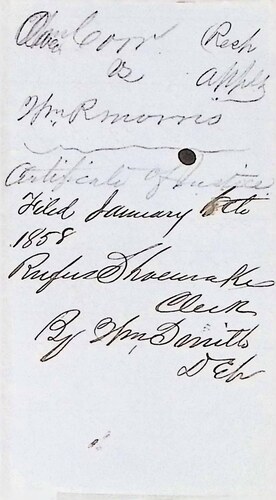 Corr Resp
vs appl
Wm R morris
Certificate of Justice
Filed January 6th
1858
Rufus Shoemaker
Clerk
By Wm Smith
D Clk